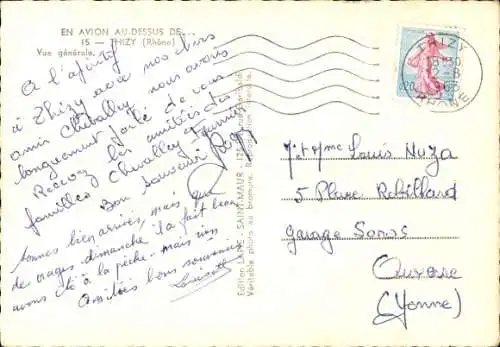 EN AVION AU-DESSUS DE...
15 - THIZY (Rhône)
Vue générale.
A l'apéritif
à Thizy avec nos chers
amis Chevalley nous avons
longuement parlé de vous
Recevez les amitiés des
familles Chevalley
Bon Souvenir
sommes bien arrivés, mais que
des orages. dimanche il a fait beau
avons été à la pêche. mais rien
Amitiés bons souvenirs
Edition LAPIE - SAINT-MAUR
Véritable photo au bromure. Reproduction interdite.
THIZY
18H30
2-8
RHÔNE
0,20
Mr et Mme Louis Nuza
5 Place Robillard
garage
Auxerre
(Yonne)